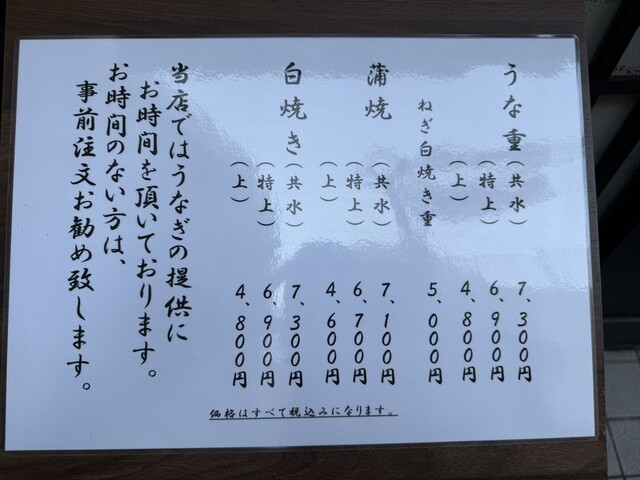 うな重(共水) 7,300円
(特上) 6,900円
(上) 4,800円
ねぎ白焼き重 5,000円
蒲焼(共水) 7,100円
(特上) 6,700円
(上) 4,600円
白焼き(共水) 7,300円
(特上) 6,900円
(上) 4,800円
価格はすべて税込みになります。
当店ではうなぎの提供に
お時間を頂いております。
お時間のない方は、
事前注文お勧め致します。